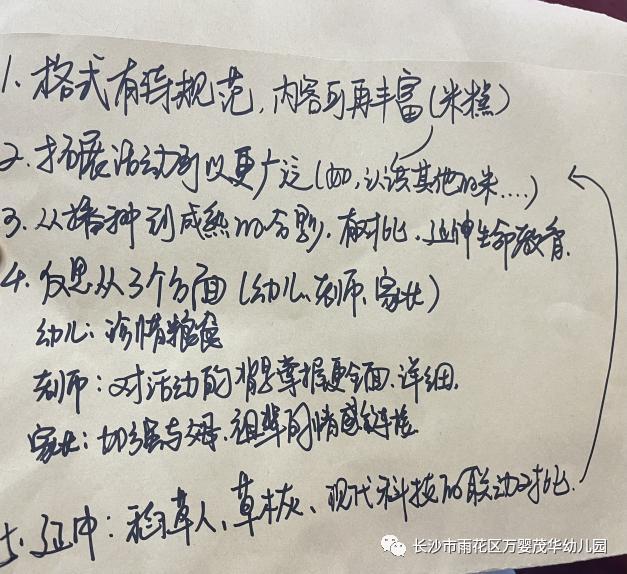 1. 格式有待规范,内容可再丰富(米糕)
2. 拓展活动可以更广泛(如,认识其他的米....)
3. 从播种到成熟的分别,有对比,延伸生命教育.
4. 反思从3个方面(幼儿、教师、家长)
幼儿:珍惜粮食
教师:对活动的 掌握更全面、详细.
家长:加强与父母、祖辈的情感链接.
5. 延伸:稻草人、草木灰、现代科技的联动对比.
长沙市雨花区万婴茂华幼儿园